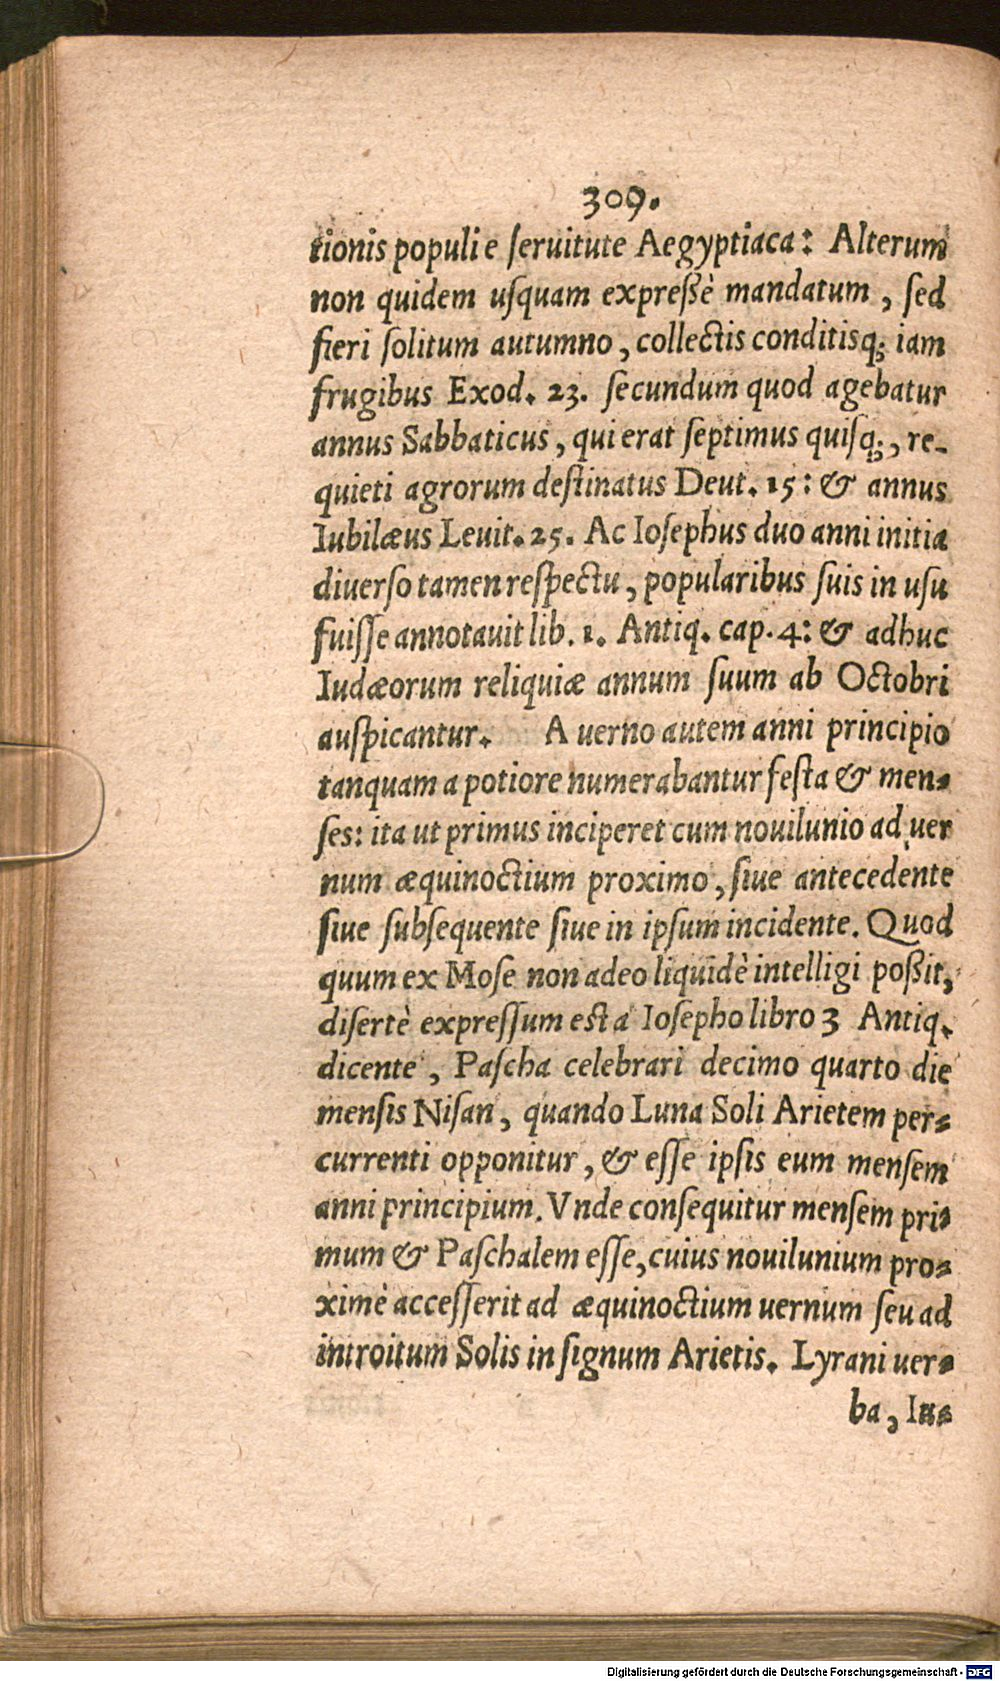 309.
tionis populi e ſeruitute Aegyptiaca: Alterum
non quidem uſquam expreßè mandatum, ſed
fieri ſolitum autumno, collectis conditisq; iam
frugibus Exod. 23. ſecundum quod agebatur
annus Sabbaticus, qui erat ſeptimus quiſq;, re-
quieti agrorum deſtinatus Deut. 15: & annus
Iubilæus Leuit. 25. Ac Ioſephus duo anni initia
diuerſo tamen reſpectu, popularibus ſuis in uſu
fuiſſe annotauit lib. 1. Antiq. cap. 4: & adhuc
Iudæorum reliquiæ annum ſuum ab Octobri
auſpicantur. A uerno autem anni principio
tanquam a potiore numerabantur feſta & men-
ſes: ita ut primus inciperet cum nouilunio ad uer
num æquinoctium proximo, ſiue antecedente
ſiue ſubſequente ſiue in ipſum incidente. Quod
quum ex Moſe non adeo liquidè intelligi poßit,
diſertè expreſſum est a Ioſepho libro 3 Antiq.
dicente, Paſcha celebrari decimo quarto die
menſis Niſan, quando Luna Soli Arietem per-
currenti opponitur, & eſſe ipſis eum menſem
anni principium. Vnde conſequitur menſem pri-
mum & Paſchalem eſſe, cuius nouilunium pro-
ximè acceſſerit ad æquinoctium uernum ſeu ad
introitum Solis in ſignum Arietis. Lyrani uer-
ba, Iu-
Digitalisierung gefördert durch die Deutsche Forschungsgemeinschaft - DFG